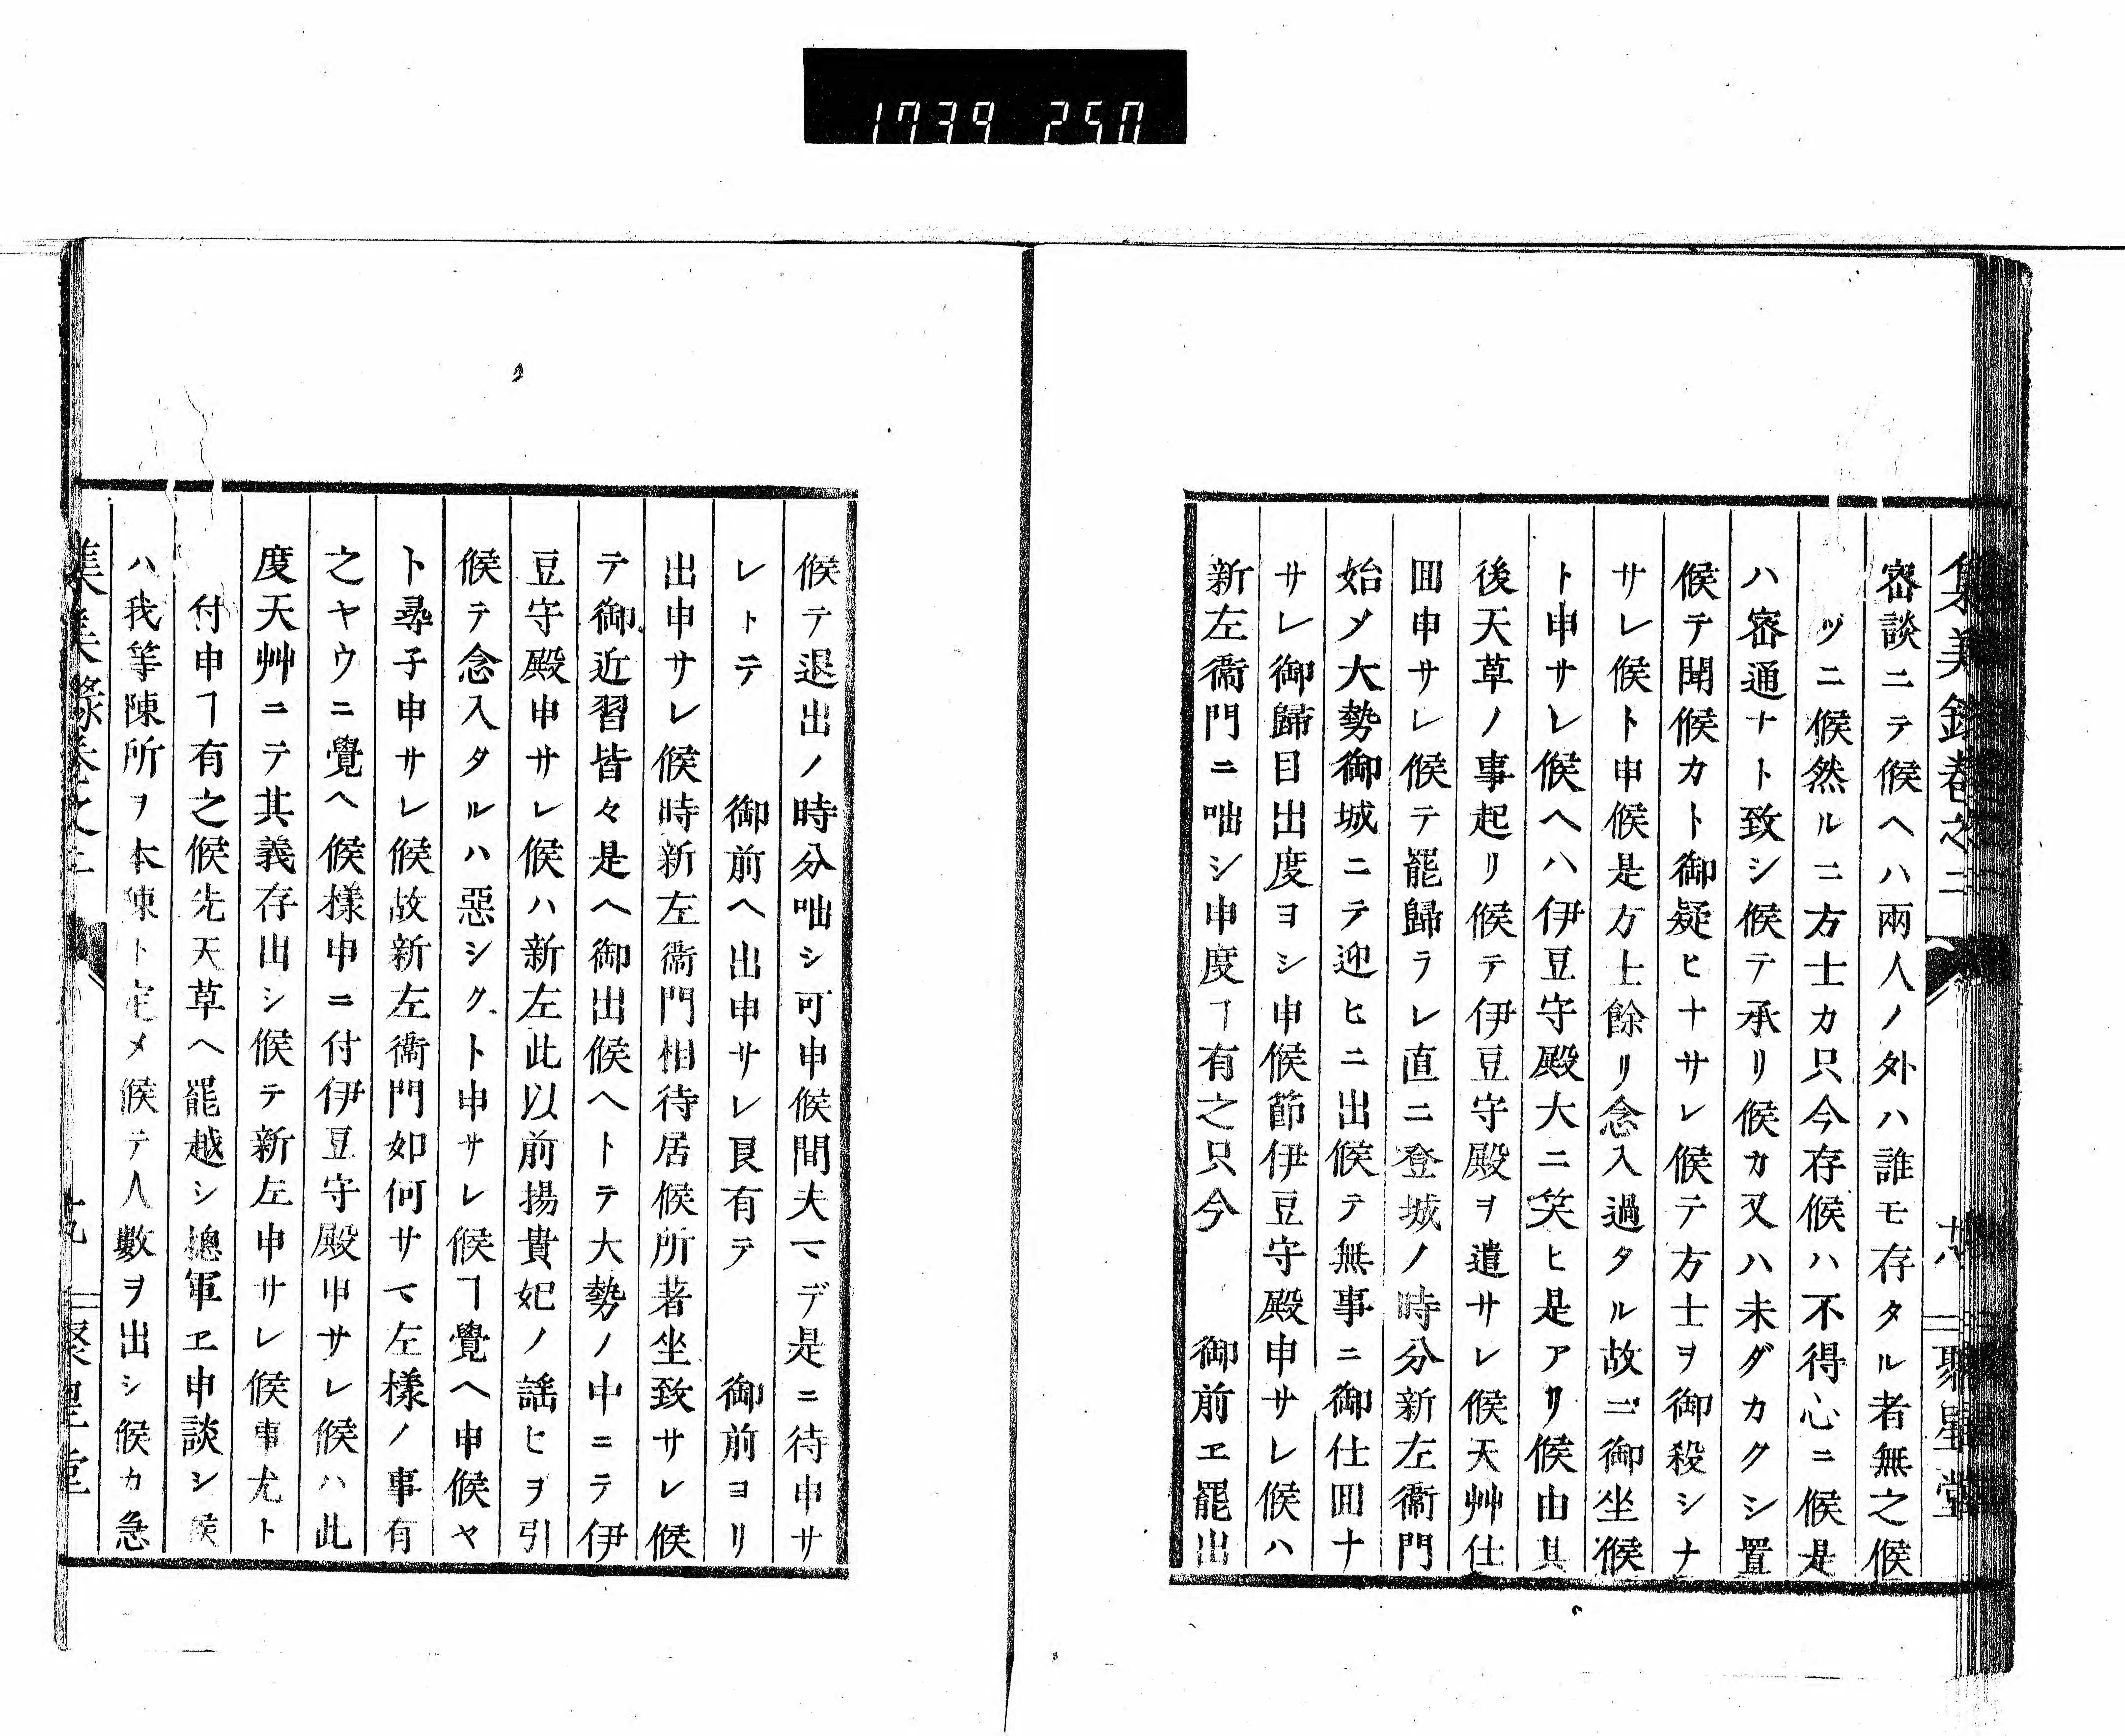 1739 250
集美録巻之二
十八
聚星堂
密談ニテ候ヘハ兩人ノ外ハ誰モ存タル者無之候
ヅニ候然ルニ方士カ只今存候ハ不得心ニ候是
ハ密通ナト致シ候テ承リ候カ又ハ未ダカクシ置
候テ聞候カト御疑ヒナサレ候テ方士ヲ御殺シナ
サレ候ト申候是方士餘リ念入過タル故ニ御坐候
ト申サレ候ヘハ伊豆守殿大ニ笑ヒ是アリ候由其
後天草ノ事起リ候テ伊豆守殿ヲ遣サレ候天艸仕
囬申サレ候テ罷歸ラレ直ニ登城ノ時分新左衞門
始メ大勢御城ニテ迎ヒニ出候テ無事ニ御仕囬ナ
サレ御歸目出度ヨシ申候節伊豆守殿申サレ候ハ
新左衞門ニ咄シ申度ヿ有之只今　御前ヱ罷出
候テ退出ノ時分咄シ可申候間夫マデ是ニ待申サ
レトテ　御前ヘ出申サレ良有テ　御前ヨリ
出申サレ候時新左衞門相待居候所著坐致サレ候
テ御近習皆々是ヘ御出候ヘトテ大勢ノ中ニテ伊
豆守殿申サレ候ハ新左此以前揚貴妃ノ謡ヒヲ引
候テ念入タルハ惡シクト申サレ候ヿ覺ヘ申候ヤ
ト尋子申サレ候故新左衞門如何サマ左樣ノ事有
之ヤウニ覺ヘ候樣申ニ付伊豆守殿申サレ候ハ此
度天艸ニテ其義存出シ候テ新左申サレ候事尤ト
付申ヿ有之候先天草ヘ罷越シ摠軍ヱ申談シ候
ハ我等陳所ヲ本陳ト定メ候テ人數ヲ出シ候カ急
十九
聚星堂